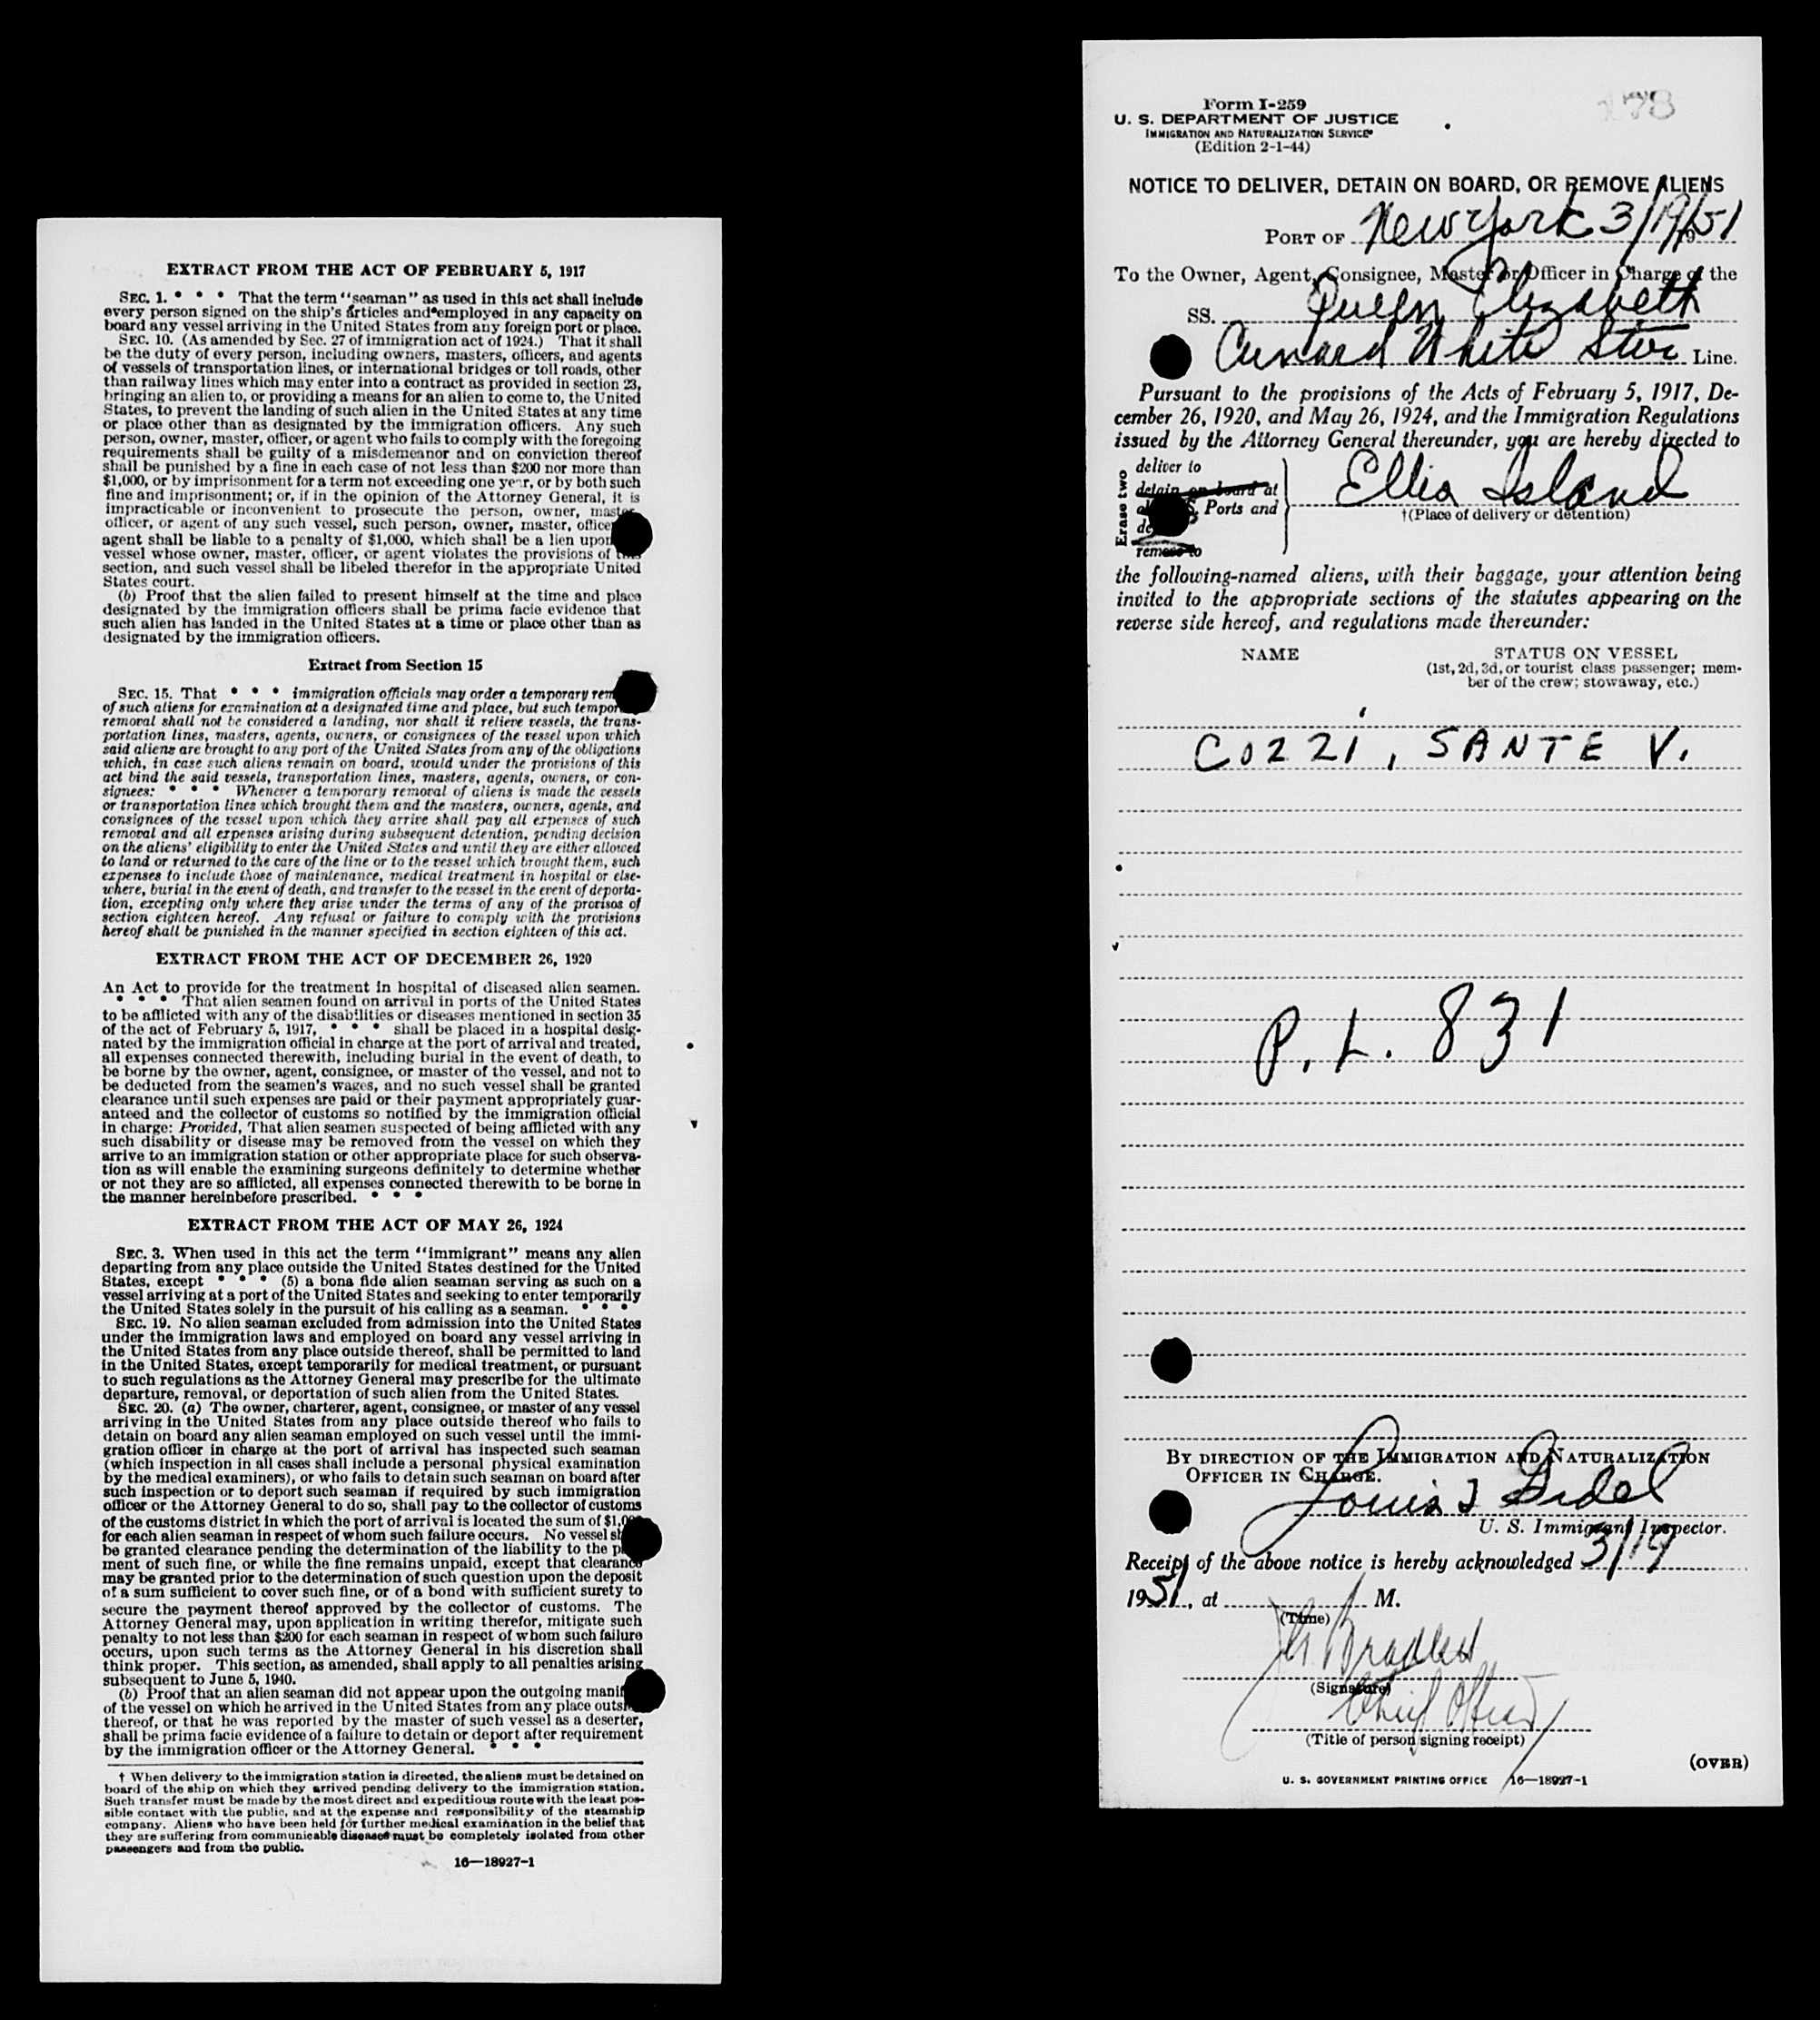 EXTRACT FROM THE ACT OF FEBRUARY 5, 1917
SEC. 1. * * * That the term "seaman" as used in this act shall include
every person signed on the ship's articles and employed in any capacity on
board any vessel arriving in the United States from any foreign port or place.
SEC. 10. (As amended by Sec. 27 of immigration act of 1924.) That it shall
be the duty of every person, including owners, masters, officers, and agents
of vessels of transportation lines, or international bridges or toll roads, other
than railway lines which may enter into a contract as provided in section 23,
bringing an alien to, or providing a means for an alien to come to, the United
States, to prevent the landing of such alien in the United States at any time
or place other than as designated by the immigration officers. Any such
person, owner, master, officer, or agent who fails to comply with the foregoing
requirements shall be guilty of a misdemeanor and on conviction thereof
shall be punished by a fine in each case of not less than $200 nor more than
$1,000, or by imprisonment for a term not exceeding one year, or by both such
fine and imprisonment; or, if in the opinion of the Attorney General, it is
impracticable or inconvenient to prosecute the person, owner, master,
officer, or agent of any such vessel, such person, owner, master, office
agent shall be liable to a penalty of $1,000, which shall be a lien upon
vessel whose owner, master, officer, or agent violates the provisions of this
section, and such vessel shall be libeled therefor in the appropriate United
States court.
(b) Proof that the alien failed to present himself at the time and place
designated by the immigration officers shall be prima facie evidence that
such alien has landed in the United States at a time or place other than as
designated by the immigration officers.
Extract from Section 15
SEC. 15. That * * * immigration officials may order a temporary rem
of such aliens for examination at a designated time and place, but such tempor
removal shall not be considered a landing, nor shall it relieve vessels, the trans-
portation lines, masters, agents, owners, or consignees of the vessel upon which
said aliens are brought to any port of the United States from any of the obligations
which, in case such aliens remain on board, would under the provisions of this
act bind the said vessels, transportation lines, masters, agents, owners, or con-
signees: * * * Whenever a temporary removal of aliens is made the vessels
or transportation lines which brought them and the masters, owners, agents, and
consignees of the vessel upon which they arrive shall pay all expenses of such
removal and all expenses arising during subsequent detention, pending decision
on the aliens' eligibility to enter the United States and until they are either allowed
to land or returned to the care of the line or to the vessel which brought them, such
expenses to include those of maintenance, medical treatment in hospital or else-
where, burial in the event of death, and transfer to the vessel in the event of deporta-
tion, excepting only where they arise under the terms of any of the provisos of
section eighteen hereof. Any refusal or failure to comply with the provisions
hereof shall be punished in the manner specified in section eighteen of this act.
EXTRACT FROM THE ACT OF DECEMBER 26, 1920
An Act to provide for the treatment in hospital of diseased alien seamen.
* * * That alien seamen found on arrival in ports of the United States
to be afflicted with any of the disabilities or diseases mentioned in section 35
of the act of February 5, 1917, * * * shall be placed in a hospital desig-
nated by the immigration official in charge at the port of arrival and treated,
all expenses connected therewith, including burial in the event of death, to
be borne by the owner, agent, consignee, or master of the vessel, and not to
be deducted from the seamen's wages, and no such vessel shall be granted
clearance until such expenses are paid or their payment appropriately guar-
anteed and the collector of customs so notified by the immigration official
in charge: Provided, That alien seamen suspected of being afflicted with any
such disability or disease may be removed from the vessel on which they
arrive to an immigration station or other appropriate place for such observa-
tion as will enable the examining surgeons definitely to determine whether
or not they are so afflicted, all expenses connected therewith to be borne in
the manner hereinbefore prescribed. * * *
EXTRACT FROM THE ACT OF MAY 26, 1924
SEC. 3. When used in this act the term "immigrant" means any alien
departing from any place outside the United States destined for the United
States, except * * * (5) a bona fide alien seaman serving as such on a
vessel arriving at a port of the United States and seeking to enter temporarily
the United States solely in the pursuit of his calling as a seaman. * * *
SEC. 19. No alien seaman excluded from admission into the United States
under the immigration laws and employed on board any vessel arriving in
the United States from any place outside thereof, shall be permitted to land
in the United States, except temporarily for medical treatment, or pursuant
to such regulations as the Attorney General may prescribe for the ultimate
departure, removal, or deportation of such alien from the United States.
SEC. 20. (a) The owner, charterer, agent, consignee, or master of any vessel
arriving in the United States from any place outside thereof who fails to
detain on board any alien seaman employed on such vessel until the immi-
gration officer in charge at the port of arrival has inspected such seaman
(which inspection in all cases shall include a personal physical examination
by the medical examiners), or who fails to detain such seaman on board after
such inspection or to deport such seaman if required by such immigration
officer or the Attorney General to do so, shall pay to the collector of customs
of the customs district in which the port of arrival is located the sum of $1,000
for each alien seaman in respect of whom such failure occurs. No vessel sh
be granted clearance pending the determination of the liability to the p
ment of such fine, or while the fine remains unpaid, except that clearance
may be granted prior to the determination of such question upon the deposit
of a sum sufficient to cover such fine, or of a bond with sufficient surety to
secure the payment thereof approved by the collector of customs. The
Attorney General may, upon application in writing therefor, mitigate such
penalty to not less than $200 for each seaman in respect of whom such failure
occurs, upon such terms as the Attorney General in his discretion shall
think proper. This section, as amended, shall apply to all penalties arising
subsequent to June 5, 1940.
(b) Proof that an alien seaman did not appear upon the outgoing manif
of the vessel on which he arrived in the United States from any place outs
thereof, or that he was reported by the master of such vessel as a deserter,
shall be prima facie evidence of a failure to detain or deport after requirement
by the immigration officer or the Attorney General. * * *
† When delivery to the immigration station is directed, the aliens must be detained on
board of the ship on which they arrived pending delivery to the immigration station.
Such transfer must be made by the most direct and expeditious route with the least pos-
sible contact with the public, and at the expense and responsibility of the steamship
company. Aliens who have been held for further medical examination in the belief that
they are suffering from communicable diseases must be completely isolated from other
passengers and from the public.
16—18927-1
Form I-259
U. S. DEPARTMENT OF JUSTICE
IMMIGRATION AND NATURALIZATION SERVICE
(Edition 2-1-44)
78
NOTICE TO DELIVER, DETAIN ON BOARD, OR REMOVE ALIENS
PORT OF New York 3/19/51
To the Owner, Agent, Consignee, Master or Officer in Charge of the
SS. Queen Elizabeth
Cunard White Star Line.
Pursuant to the provisions of the Acts of February 5, 1917, De-
cember 26, 1920, and May 26, 1924, and the Immigration Regulations
issued by the Attorney General thereunder, you are hereby directed to
Erase two
deliver to
detain on board at
Ports and
remove to
Ellis Island
†(Place of delivery or detention)
the following-named aliens, with their baggage, your attention being
invited to the appropriate sections of the statutes appearing on the
reverse side hereof, and regulations made thereunder:
NAME STATUS ON VESSEL
(1st, 2d, 3d, or tourist class passenger; mem-
ber of the crew; stowaway, etc.)
COZZI, SANTE V.
P.L. 831
BY DIRECTION OF THE IMMIGRATION AND NATURALIZATION
OFFICER IN CHARGE.
Louis
U. S. Immigrant Inspector.
Receipt of the above notice is hereby acknowledged 3/19
1951, at M.
(Time)
(Signature)
Chief Officer
(Title of person signing receipt)
(OVER)
U. S. GOVERNMENT PRINTING OFFICE 16—18927-1